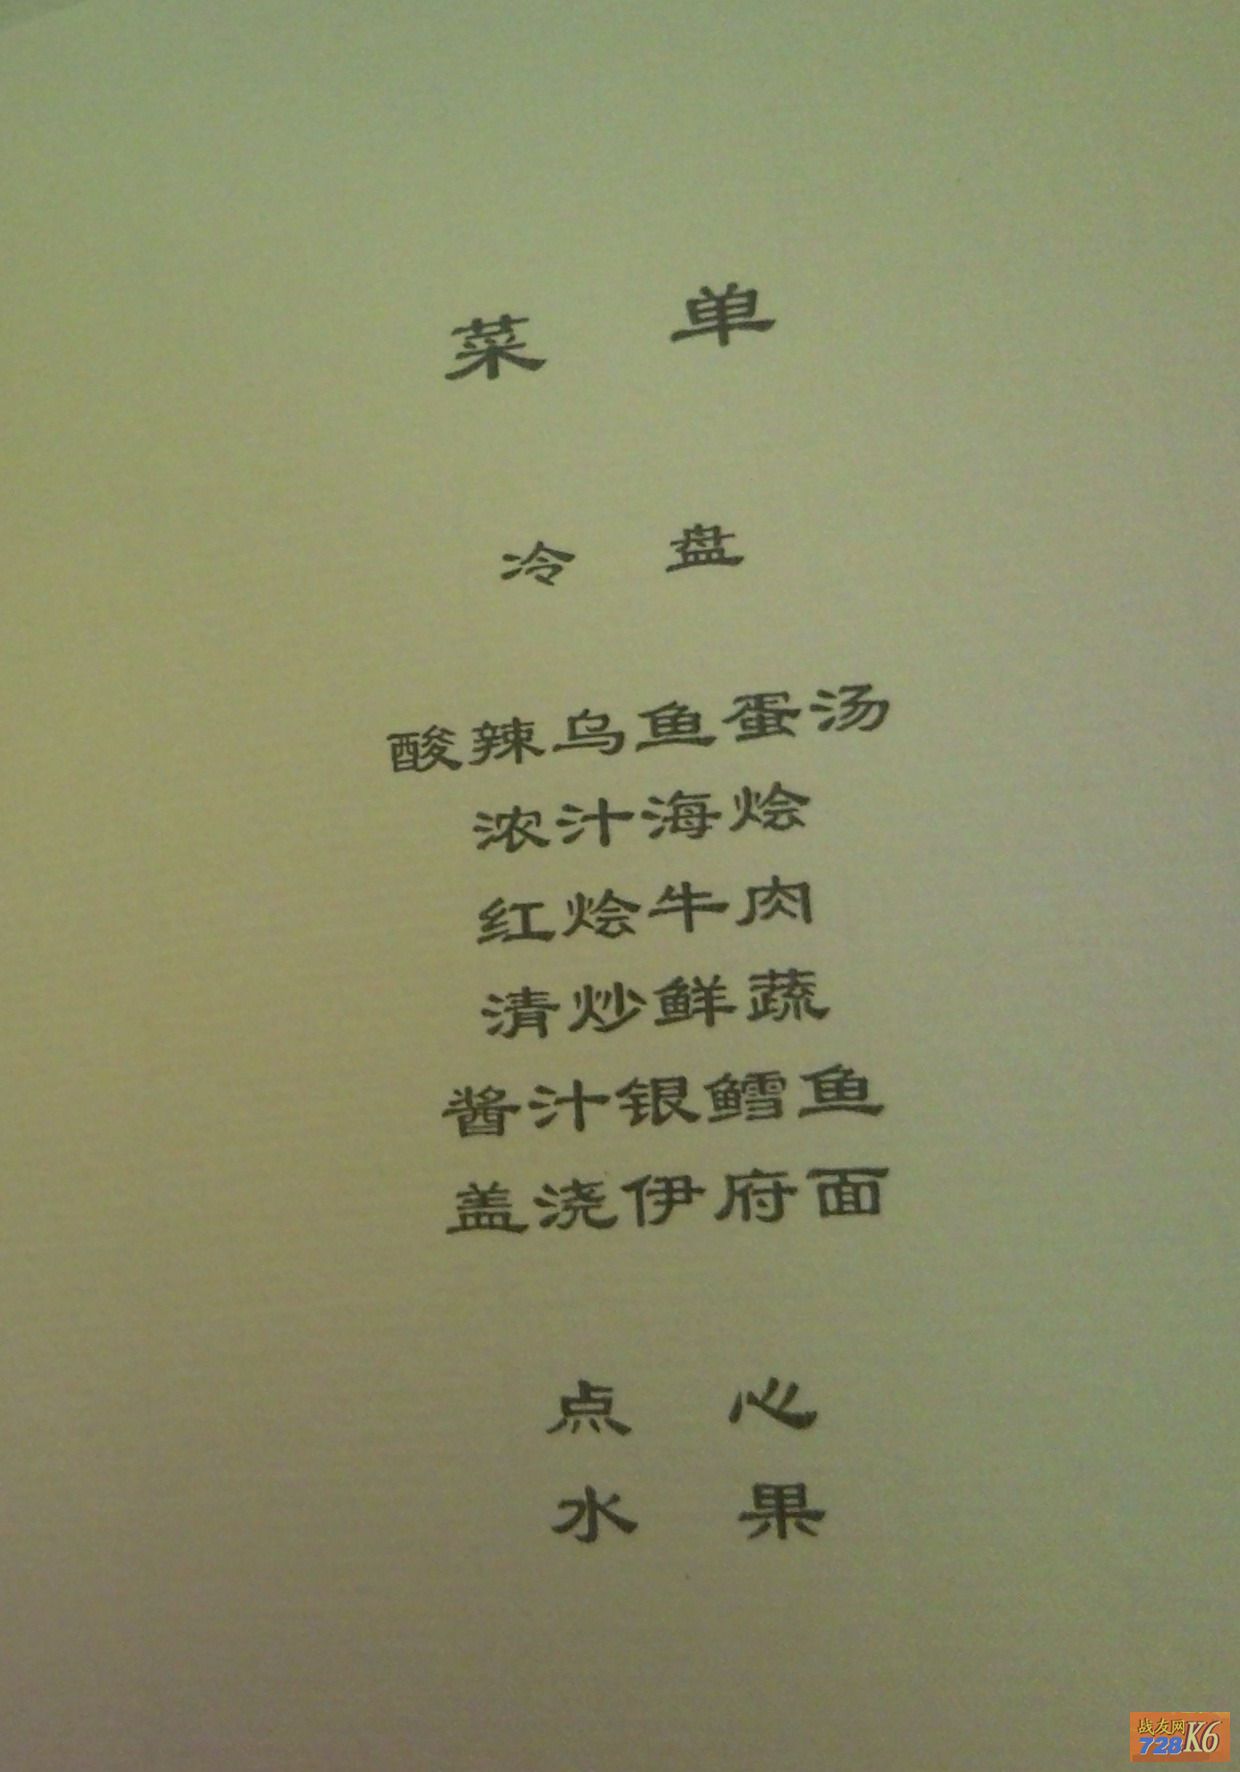 菜 单
冷 盘
酸辣乌鱼蛋汤
浓汁海烩
红烩牛肉
清炒鲜蔬
酱汁银鳕鱼
盖浇伊府面
点 心
水 果
战友网
728K6